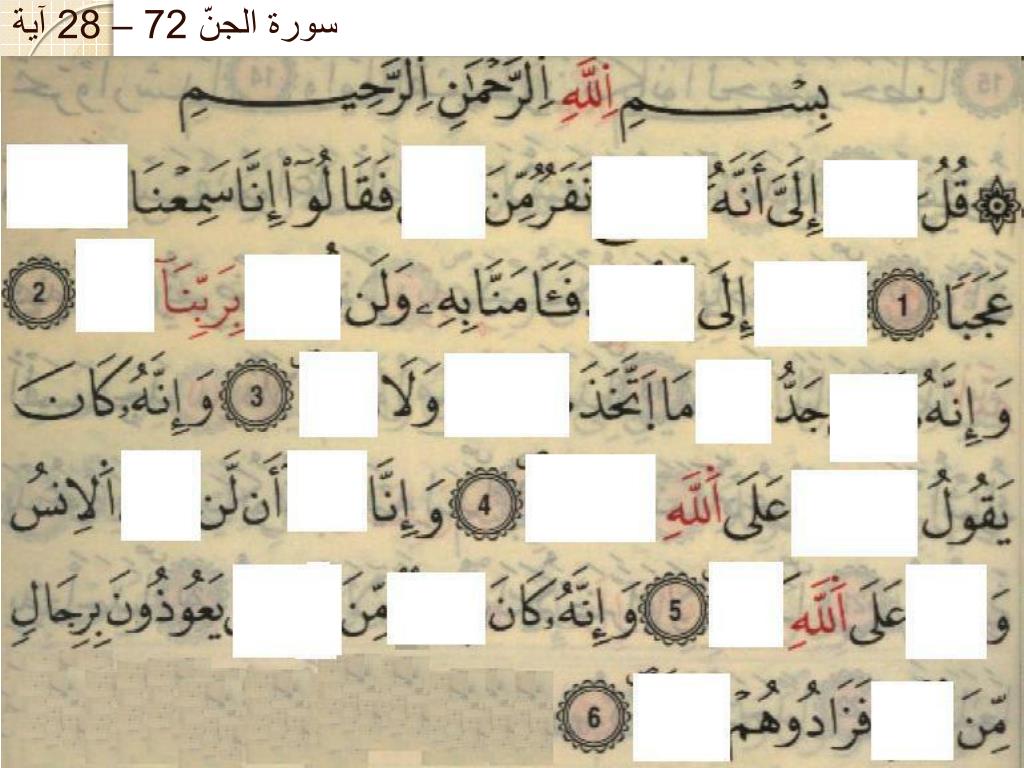 سورة الجنّ 72 – 28 آية
بِسْمِ اِ۬للَّهِ اِ۬لرَّحْمَٰنِ اِ۬لرَّحِيمِ
قُلُ إِلَيَّ أَنَّهُ نَفَرٞ مِّنَ فَقَالُوٓاْ إِنَّا سَمِعْنَا
عَجَبٗا 1 إِلَى فَـَٔامَنَّا بِهِۦ وَلَن بِرَبِّنَآ 2
وَإِنَّهُۥ جَدُّ مَا اَ۪تَّخَذَ وَلَا 3 وَإِنَّهُۥ كَانَ
يَقُولُ عَلَى اَ۬للَّهِ 4 وَإِنَّا أَن لَّن اُ۬لِانسُ
وَ عَلَى اَ۬للَّهِ 5 وَإِنَّهُۥ كَانَ مِّنَ يَعُوذُونَ بِرِجَالٖ
مِّنَ فَزَادُوهُمْ 6